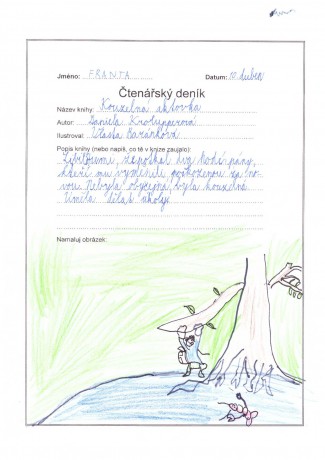 Jméno: FRANTA Datum: 10. duben
Čtenářský deník
Název knihy: Kouzelná aktovka
Autor: Daniela Krolupperová
Ilustroval: Vlasta Baránková
Popis knihy (nebo napiš, co tě v knize zaujalo):
Líbilo se mi, že potkal dva hodné pány,
kteří mu vyměnili poškozenou za no-
vou. Nebyla obyčejná, byla kouzelná.
Uměla dělat úkoly.
Namaluj obrázek: